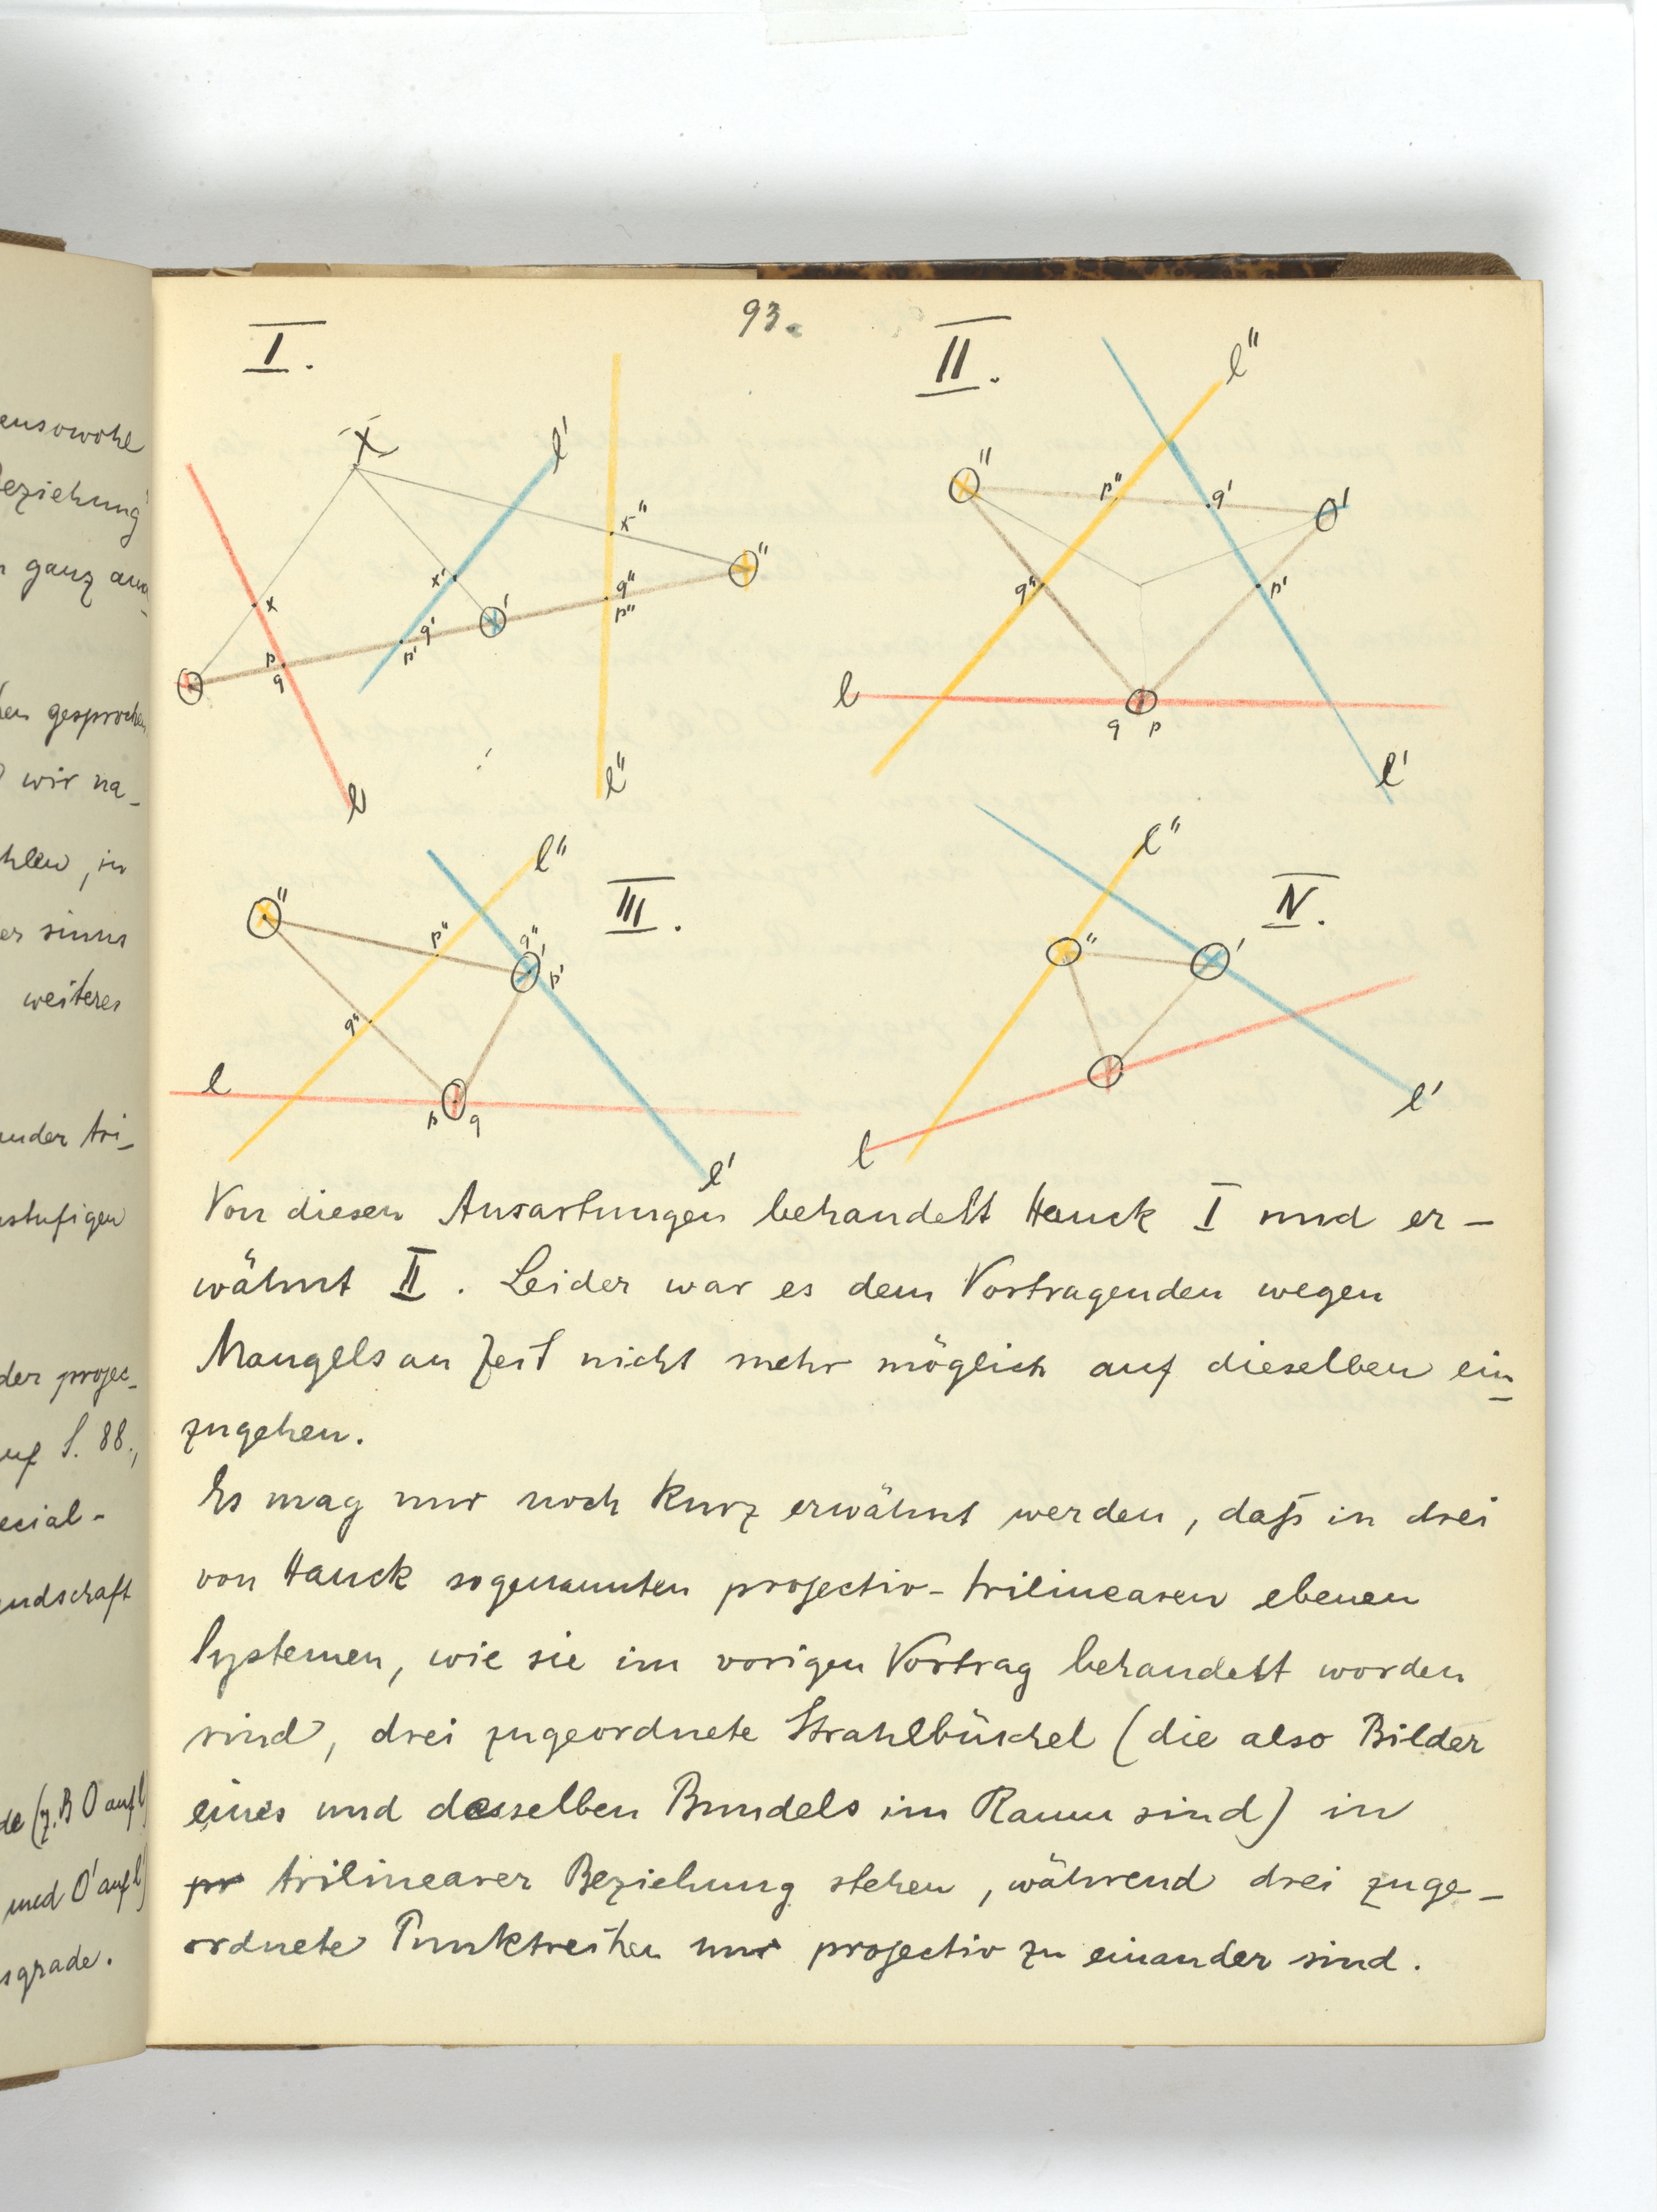 ensowohl
eziehung
ganz
gesprochen
wir na-
hlen, in
er sinns
weiteres
ander tri-
stufigen
der projec-
auf S. 88.,
ecial-
de (z.B O auf l
und O' auf l'
sgrade.
93.
I.
X
l'
x"
O"
x'
x
q"
p"
O'
q'
p'
p
q
O
l
l"
II.
l"
O"
p"
q'
O'
q"
p'
l
O
q p
l'
III.
l"
O"
p"
q"
O'
p'
q"
l
O
p q
l'
IV.
l"
O"
O'
O
l
l'
Von diesen Ausartungen behandelt Hauck I und er-
wähnt II. Leider war es dem Vortragenden wegen
Mangels an Zeit nicht mehr möglich auf dieselben ein-
zugehen.
Es mag nur noch kurz erwähnt werden, daß in drei
von Hauck sogenannten projectiv-trilinearen ebenen
Systemen, wie sie im vorigen Vortrag behandelt worden
sind, drei zugeordnete Strahlbüschel (die also Bilder
eines und desselben Bundels im Raum sind) in
pr trilinearer Beziehung stehen, während drei zuge-
ordnete Punktreihen nur projectiv zu einander sind.